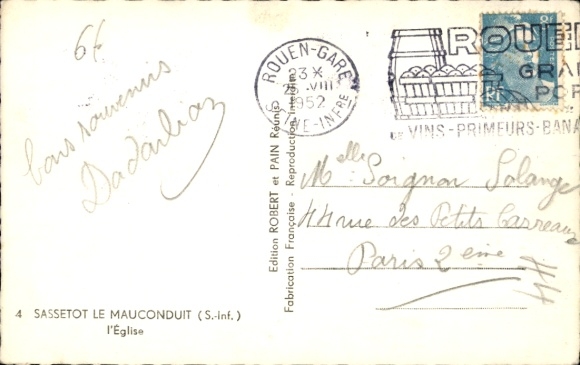 6f
bons souvenirs
Dadarlian
4 SASSETOT LE MAUCONDUIT (S.-Inf.)
l'Église
Edition ROBERT et PAIN Réunis
Fabrication Française - Reproduction Interdite
ROUEN-GARE
23 X
VIII
1952
INFRE
ROUE
GRA
POR
VINS-PRIMEURS-BANA
Melle Soignon Solange
44 rue des Petits Carreaux
Paris 2eme